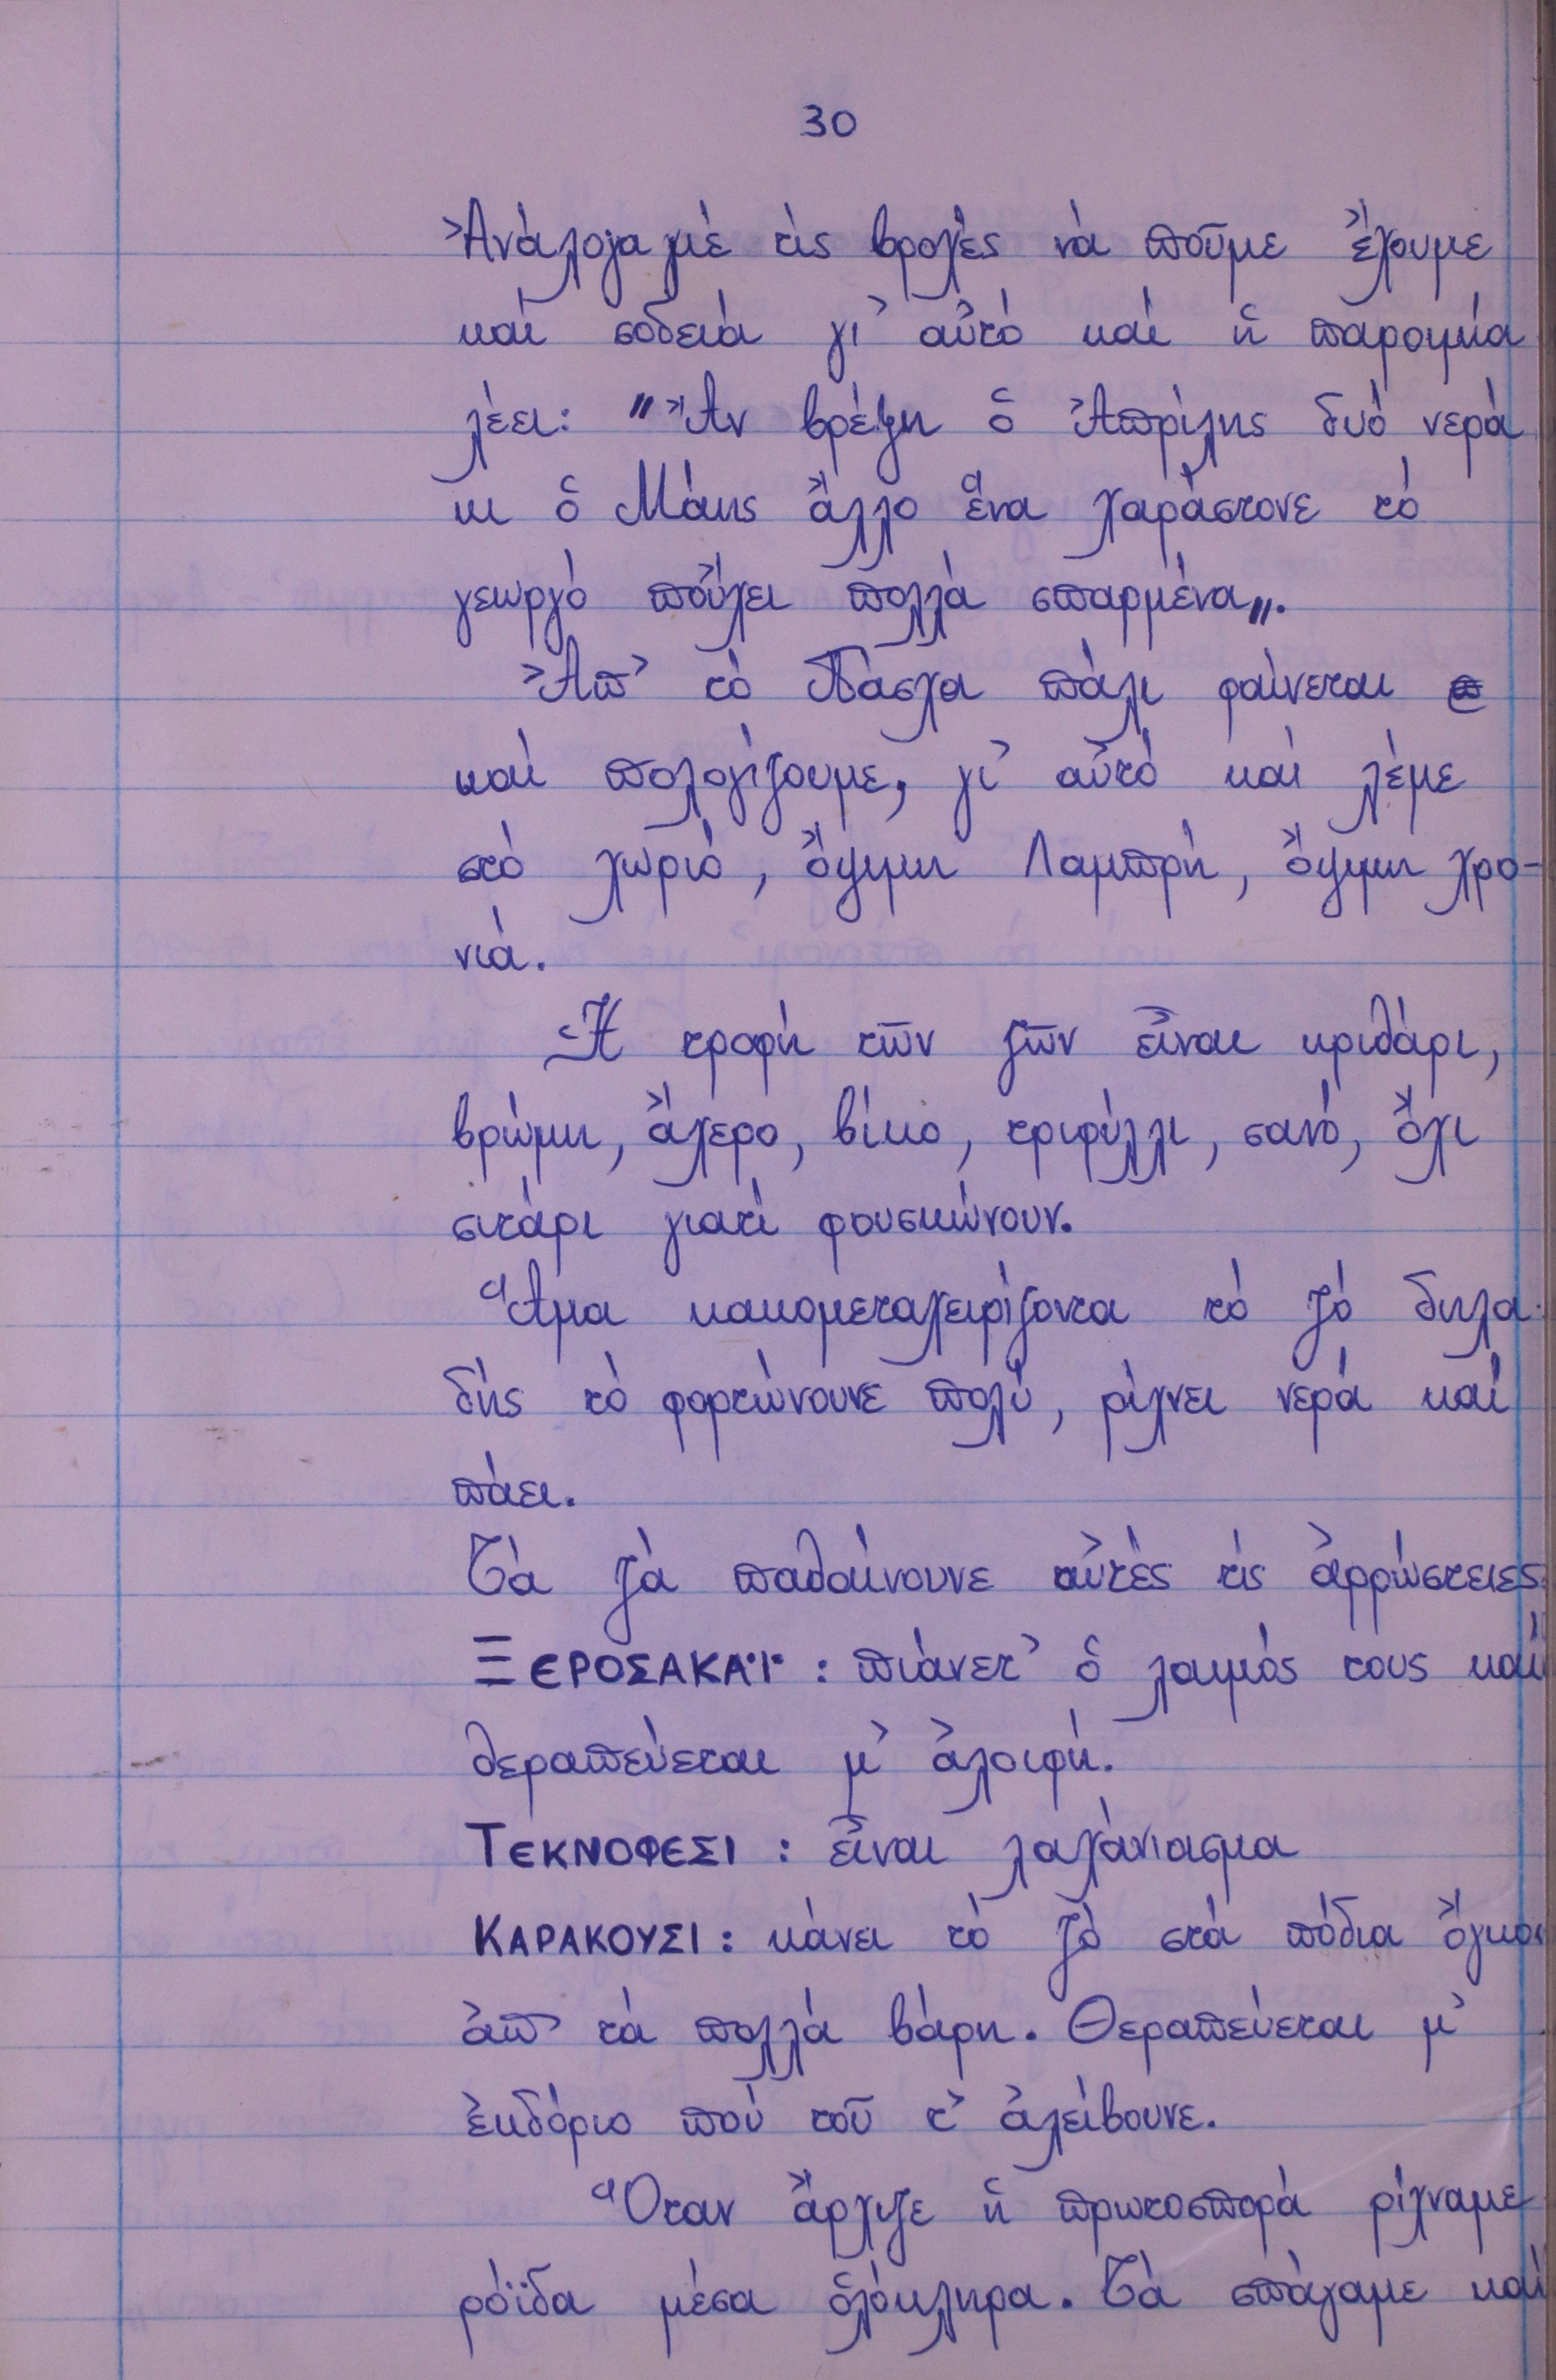 30
Ἀνάλογα μέ τίς βροχές νά ποῦμε ἔχουμε
καί σοδειά γι' αὐτό καί ἡ παροιμία
λέει: "Ἄν βρέξη ὁ Ἀπρίλης δυό νερά
κι ὁ Μάης ἄλλο ἕνα χαράστονε τό
γεωργό πὄχει πολλά σπαρμένα„.
Ἀπ' τό Πάσχα πάλι φαίνεται
καί πολογίζουμε, γι' αὐτό καί λέμε
στό χωριό, ὄψιμη Λαμπρή, ὄψιμη χρο-
νιά.
Ἡ τροφή τῶν ζῶν εἶναι κριθάρι,
βρώμη, ἄχερο, βίκο, τριφύλλι, σανό, ὄχι
σιτάρι γιατί φουσκώνουν.
Ἅμα κακομεταχειρίζοντα τό ζό δηλα-
δής τό φορτώνουνε πολύ, ρίχνει νερά καί
πάει.
Τά ζά παθαίνουνε αὐτές τίς ἀρρώστειες:
ΞΕΡΟΣΑΚΑΪ: πιάνετ' ὁ λαιμός τους καί
θεραπεύεται μ' ἀλοιφή.
ΤΕΚΝΟΦΕΣΙ: εἶναι λαχάνιασμα
ΚΑΡΑΚΟΥΣΙ: κάνει τό ζό στά πόδια ὄγκον
ἀπ' τά πολλά βάρη. Θεραπεύεται μ'
ἐκδόριο πού τοῦ τ' ἀλείβουνε.
Ὅταν ἄρχιζε ἡ πρωτοσπορά ρίχναμε
ρόϊδα μέσα ὁλόκληρα. Τά σπάγαμε καί